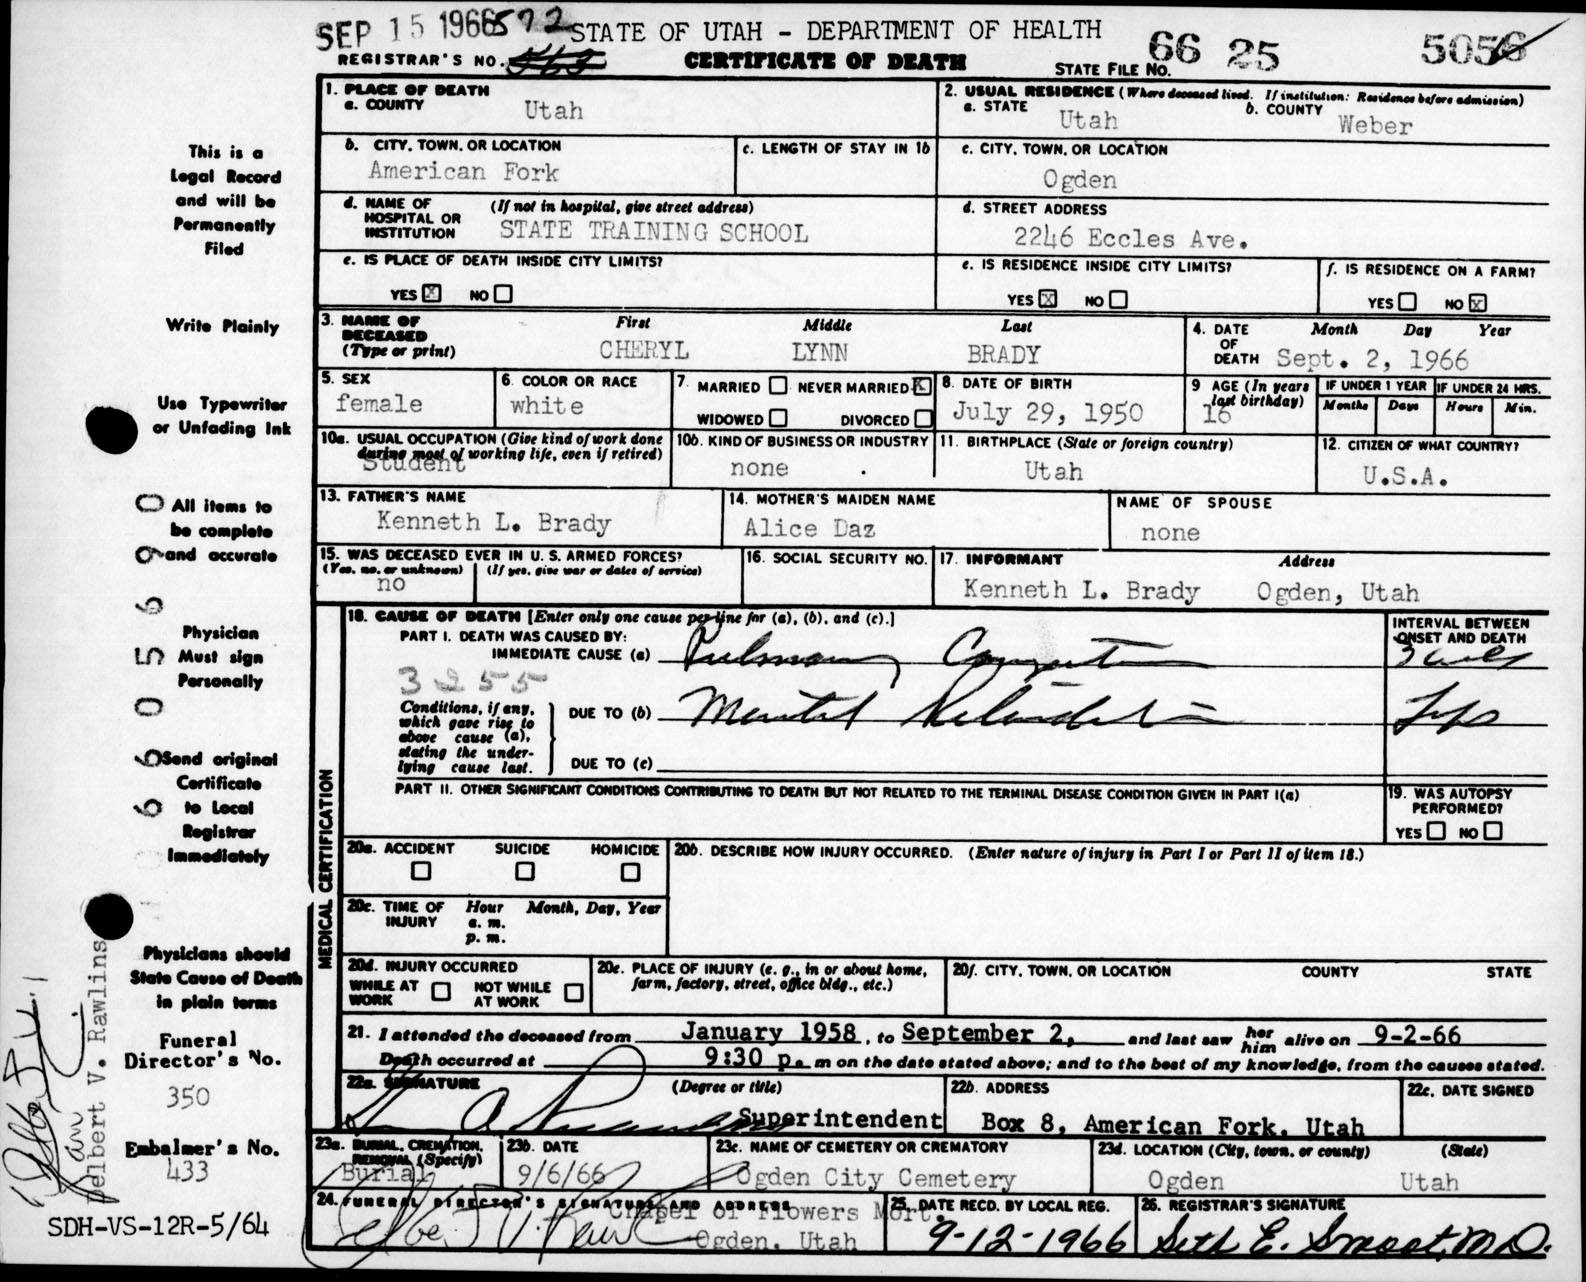 SEP 15 1966 572 STATE OF UTAH - DEPARTMENT OF HEALTH
REGISTRAR'S NO. CERTIFICATE OF DEATH STATE FILE NO. 66 25 5056
This is a
Legal Record
and will be
Permanently
Filed
Write Plainly
Use Typewriter
or Unfading Ink
All items to
be complete
and accurate
Physician
Must sign
Personally
Send original
Certificate
to Local
Registrar
Immediately
Physicians should
State Cause of Death
in plain terms
Funeral
Director's No.
350
Embalmer's No.
433
SDH-VS-12R-5/64
Delbert V. Rawlins
1. PLACE OF DEATH
a. COUNTY Utah
2. USUAL RESIDENCE (Where deceased lived. If institution: Residence before admission)
a. STATE Utah b. COUNTY Weber
b. CITY, TOWN, OR LOCATION
American Fork
c. LENGTH OF STAY IN 1b
c. CITY, TOWN, OR LOCATION
Ogden
d. NAME OF HOSPITAL OR INSTITUTION (If not in hospital, give street address)
STATE TRAINING SCHOOL
d. STREET ADDRESS
2246 Eccles Ave.
e. IS PLACE OF DEATH INSIDE CITY LIMITS?
YES X NO
e. IS RESIDENCE INSIDE CITY LIMITS?
YES X NO
f. IS RESIDENCE ON A FARM?
YES NO X
3. NAME OF DECEASED (Type or print) First Middle Last
CHERYL LYNN BRADY
4. DATE OF DEATH Month Day Year
Sept. 2, 1966
5. SEX
female
6. COLOR OR RACE
white
7. MARRIED NEVER MARRIED X
WIDOWED DIVORCED
8. DATE OF BIRTH
July 29, 1950
9 AGE (In years last birthday)
16
IF UNDER 1 YEAR IF UNDER 24 HRS.
Months Days Hours Min.
10a. USUAL OCCUPATION (Give kind of work done during most of working life, even if retired)
Student
10b. KIND OF BUSINESS OR INDUSTRY
none
11. BIRTHPLACE (State or foreign country)
Utah
12. CITIZEN OF WHAT COUNTRY?
U.S.A.
13. FATHER'S NAME
Kenneth L. Brady
14. MOTHER'S MAIDEN NAME
Alice Daz
NAME OF SPOUSE
none
15. WAS DECEASED EVER IN U. S. ARMED FORCES?
(Yes, no, or unknown) (If yes, give war or dates of service)
no
16. SOCIAL SECURITY NO.
17. INFORMANT Address
Kenneth L. Brady Ogden, Utah
MEDICAL CERTIFICATION
18. CAUSE OF DEATH [Enter only one cause per line for (a), (b), and (c).]
PART I. DEATH WAS CAUSED BY:
IMMEDIATE CAUSE (a) Pulmonary Congestion
INTERVAL BETWEEN ONSET AND DEATH
3255
Conditions, if any, which gave rise to above cause (a), stating the underlying cause last.
DUE TO (b) Mental Retardation
DUE TO (c)
PART II. OTHER SIGNIFICANT CONDITIONS CONTRIBUTING TO DEATH BUT NOT RELATED TO THE TERMINAL DISEASE CONDITION GIVEN IN PART I(a)
19. WAS AUTOPSY PERFORMED?
YES NO
20a. ACCIDENT SUICIDE HOMICIDE
20b. DESCRIBE HOW INJURY OCCURRED. (Enter nature of injury in Part I or Part II of item 18.)
20c. TIME OF INJURY Hour Month, Day, Year
a. m.
p. m.
20d. INJURY OCCURRED
WHILE AT WORK NOT WHILE AT WORK
20e. PLACE OF INJURY (e. g., in or about home, farm, factory, street, office bldg., etc.)
20f. CITY, TOWN, OR LOCATION COUNTY STATE
21. I attended the deceased from January 1958, to September 2, and last saw her him alive on 9-2-66
Death occurred at 9:30 p. m on the date stated above; and to the best of my knowledge, from the causes stated.
22a. SIGNATURE (Degree or title)
Superintendent
22b. ADDRESS
Box 8, American Fork, Utah
22c. DATE SIGNED
23a. BURIAL, CREMATION, REMOVAL (Specify)
Burial
23b. DATE
9/6/66
23c. NAME OF CEMETERY OR CREMATORY
Ogden City Cemetery
23d. LOCATION (City, town, or county) (State)
Ogden Utah
24. FUNERAL DIRECTOR'S SIGNATURE AND ADDRESS
Chapel of Flowers Mort.
Ogden, Utah
25. DATE RECD. BY LOCAL REG.
9-12-1966
26. REGISTRAR'S SIGNATURE
Seth E. Smoot, M.D.